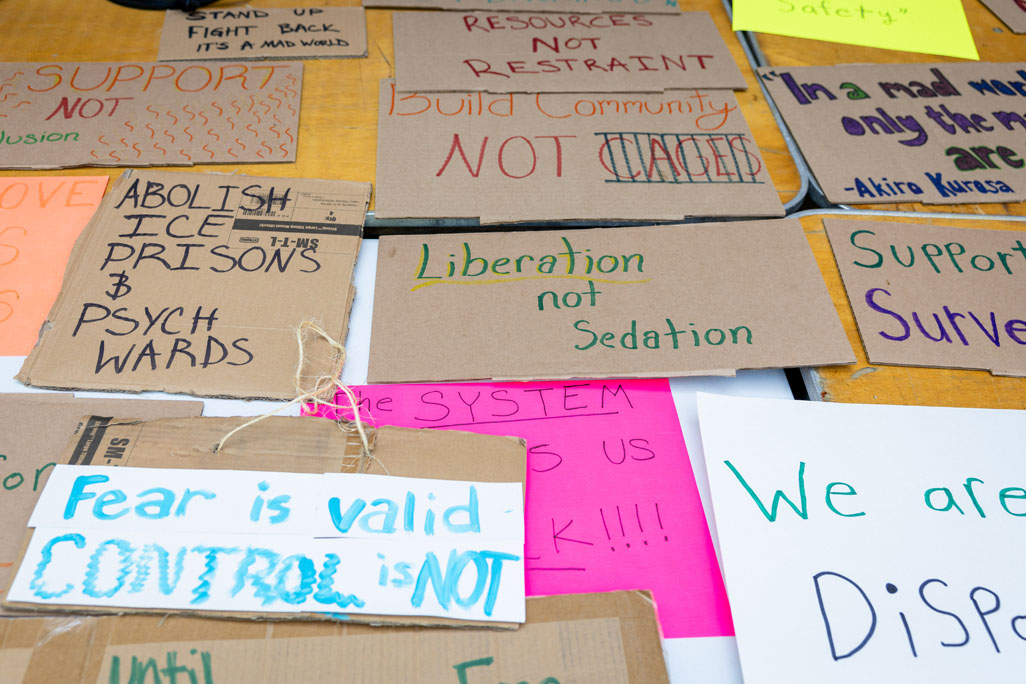 STAND UP
FIGHT BACK
IT'S A MAD WORLD
RESOURCES
NOT
RESTRAINT
Safety"
SUPPORT
NOT
Build Community
NOT CAGES
"In a mad
only the
are
-Akira Kurosa
ABOLISH
ICE
PRISONS
&
PSYCH
WARDS
SM-T-L
Liberation
not
Sedation
Support
the SYSTEM
US
!!!!
Fear is valid
CONTROL is NOT
We are
Until